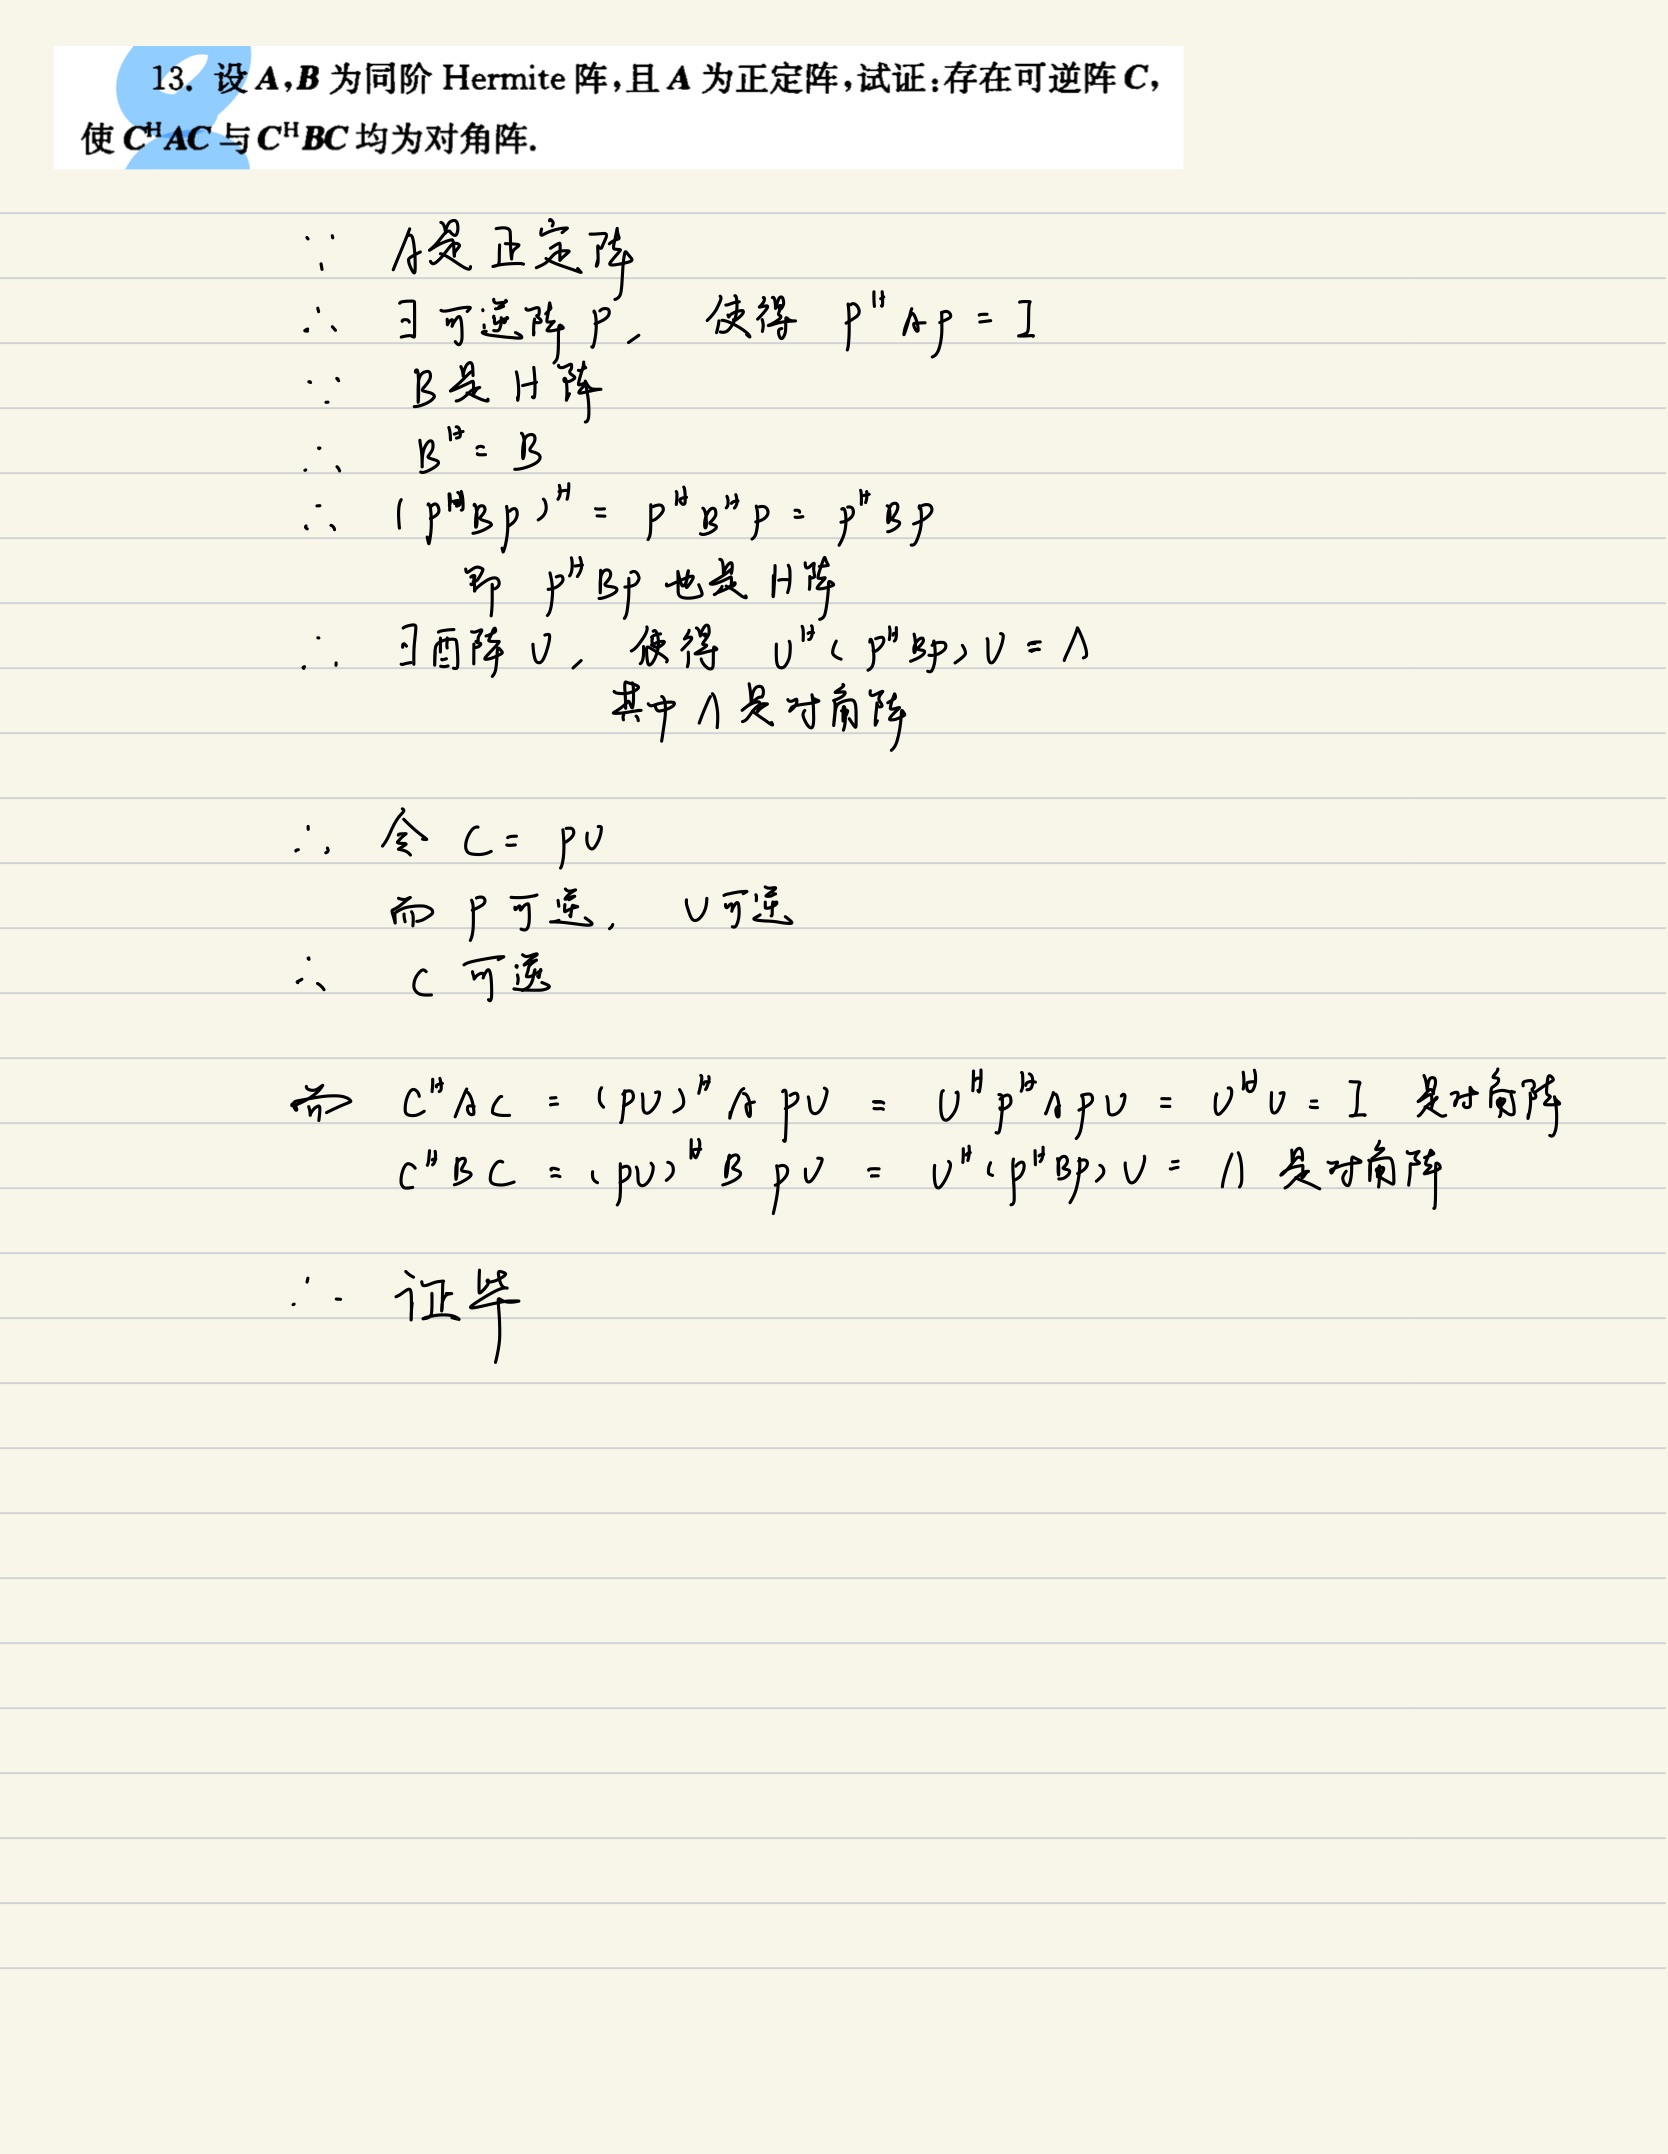 13. 设 A,B 为同阶 Hermite 阵,且 A 为正定阵,试证:存在可逆阵 C,
使 CᴴAC 与 CᴴBC 均为对角阵.
∵ A是正定阵
∴ ∃可逆阵 P, 使得 PᴴAP = I
∵ B是 H 阵
∴ Bᴴ = B
∴ (PᴴBP)ᴴ = PᴴBᴴP = PᴴBP
即 PᴴBP 也是 H阵
∴ ∃酉阵 U, 使得 Uᴴ(PᴴBP)U = Λ
其中 Λ 是对角阵
∴ 令 C = PU
而 P 可逆, U 可逆
∴ C 可逆
而 CᴴAC = (PU)ᴴAPU = UᴴPᴴAPU = UᴴU = I 是对角阵
CᴴBC = (PU)ᴴBPU = Uᴴ(PᴴBP)U = Λ 是对角阵
∴ 证毕